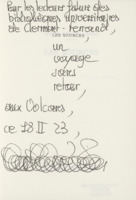 Pour les lecteurs
bibliothèques universitaires
de Clermont Ferrand,
LES SOURCES
un
voyage
jours
retour
aux Volcans,
ce 18 II 23,